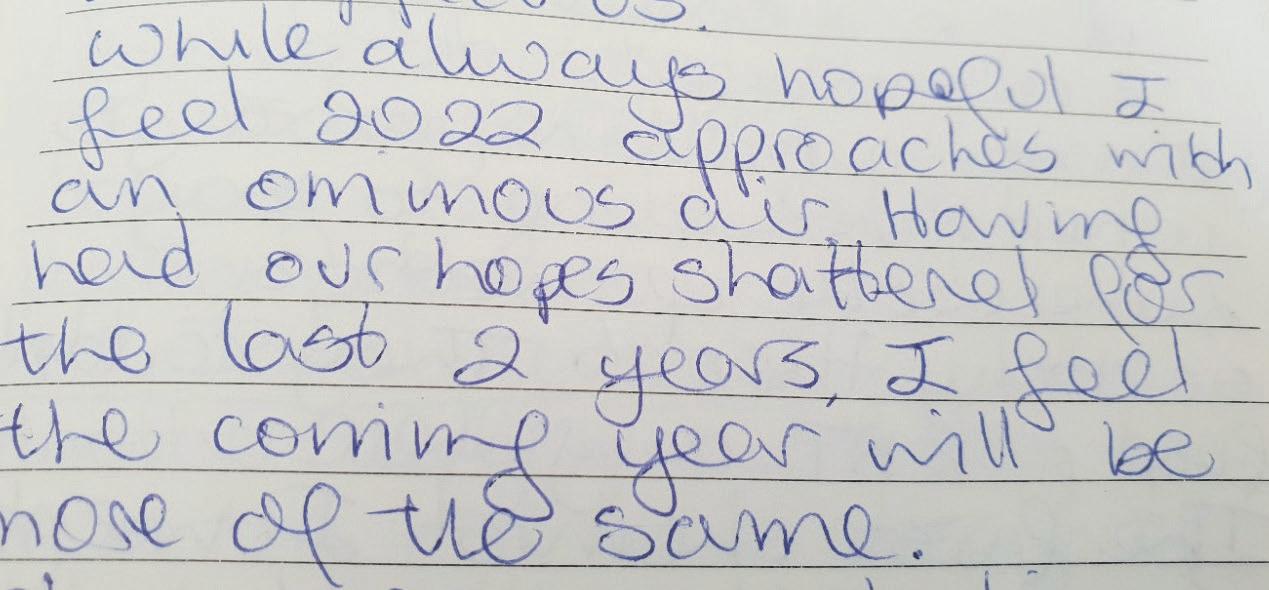 while always hopeful I
feel 2022 approaches with
an ominous air. Having
had our hopes shattered for
the last 2 years, I feel
the coming year will be
more of the same.